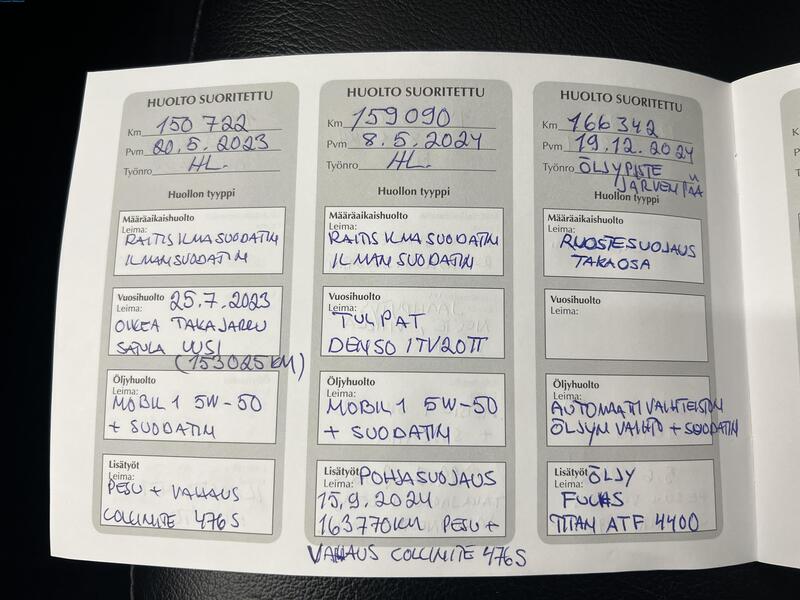 HUOLTO SUORITETTU
Km 150 722
Pvm 20.5.2023
Työnro HL.
Huollon tyyppi
Määräaikaishuolto
Leima:
RAITIS ILMASUODATIN
ILMANSUODATIN
Vuosihuolto 25.7.2023
Leima:
OIKEA TAKAJARRU
SATULA UUSI
(153025KM)
Öljyhuolto
Leima:
MOBIL 1 5W-50
+ SUODATIN
Lisätyöt
Leima:
PESU + VAHAUS
COLLINITE 476S
HUOLTO SUORITETTU
Km 159090
Pvm 8.5.2024
Työnro HL.
Huollon tyyppi
Määräaikaishuolto
Leima:
RAITIS ILMASUODATIN
ILMANSUODATIN
Vuosihuolto
Leima:
TULPAT
DENSO ITV20TT
Öljyhuolto
Leima:
MOBIL 1 5W-50
+ SUODATIN
Lisätyöt POHJASUOJAUS
Leima:
15.9.2024
163770KM PESU +
VAHAUS COLLINITE 476S
HUOLTO SUORITETTU
Km 166342
Pvm 19.12.2024
Työnro ÖLJYPISTE
JÄRVENPÄÄ
Huollon tyyppi
Määräaikaishuolto
Leima:
RUOSTESUOJAUS
TAKAOSA
Vuosihuolto
Leima:
Öljyhuolto
Leima:
AUTOMAATTIVAIHTEISTON
ÖLJYN VAIHTO + SUODATIN
Lisätyöt ÖLJY
Leima:
FUCHS
TITAN ATF 4400